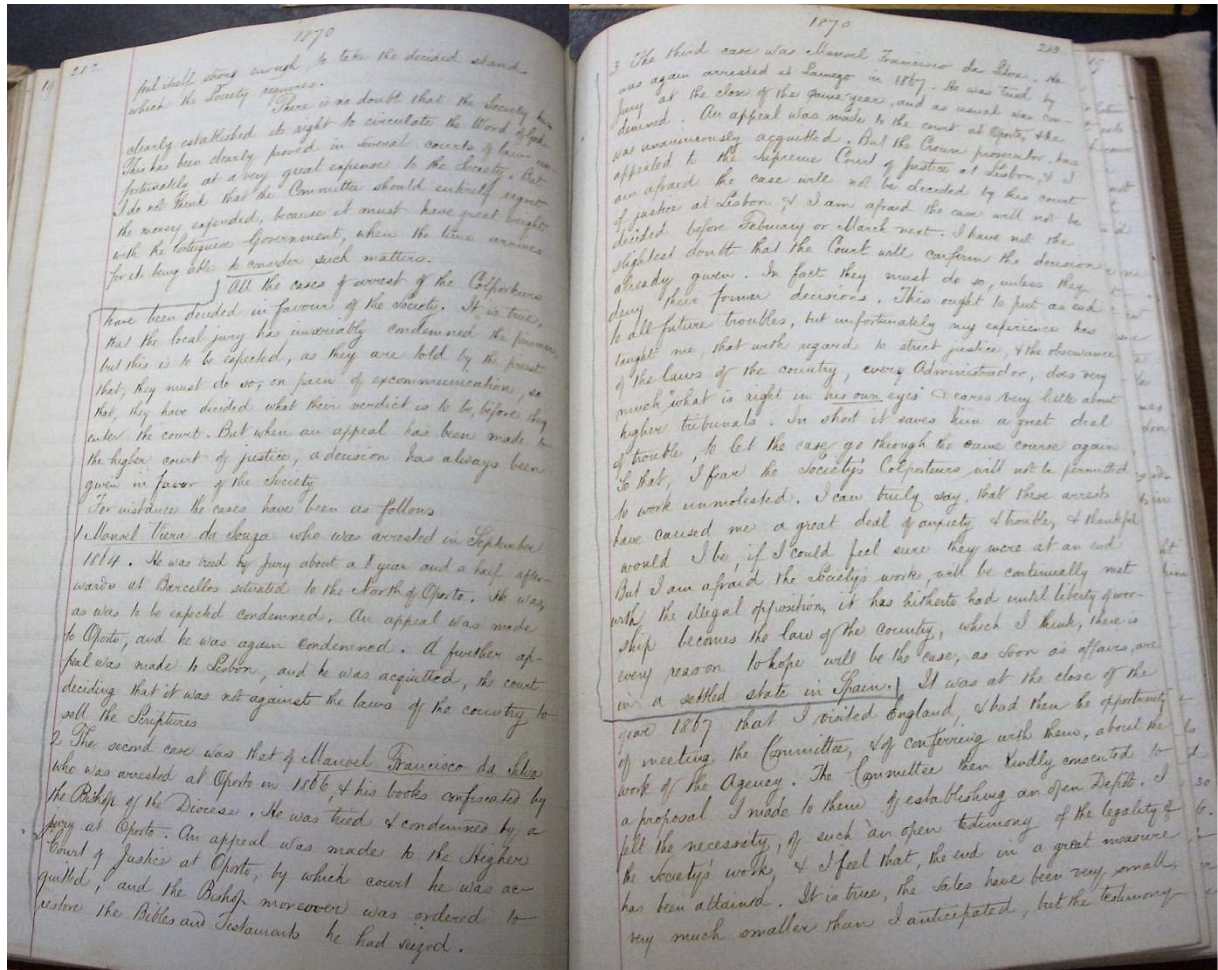 1870
212
feel itself strong enough to take the decided stand
which the Society requires.
There is no doubt that the Society has
clearly established its right to circulate the Word of God.
This has been clearly proved in several courts of law un-
fortunately at a very great expense to the Society. But
I do not think that the Committee should entirely regret
the money expended, because it must have great weight
with the Portuguese Government, when the time arrives
for its being able to consider such matters.
All the cases of arrest of the Colporteurs
have been decided in favour of the Society. It is true,
that the local jury has invariably condemned the prisoner,
but this is to be expected, as they are told by the priest
that, they must do so, on pain of excommunication, so
that, they have decided what their verdict is to be, before they
enter the court. But when an appeal has been made to
the higher court of justice, a decision has always been
given in favor of the Society
For instance the cases have been as follows
1 Manoel Viera da Souza who was arrested in September
1864. He was tried by Jury about a 1 year and a half after-
wards at Barcellos situated to the North of Oporto. He was,
as was to be expected condemned. An appeal was made
to Oporto, and he was again condemned. A further ap-
peal was made to Lisbon, and he was acquitted, the court
deciding that it was not against the laws of the country to
sell the Scriptures
2 The second case was that of Manoel Francisco da Silva
who was arrested at Oporto in 1866, & his books confiscated by
the Bishop of the Diocese. He was tried & condemned by a
jury at Oporto. An appeal was made to the Higher
Court of Justice at Oporto, by which court he was ac-
quitted, and the Bishop moreover was ordered to
restore the Bibles and Testaments he had seized.
1870
213
3 The third case was Manoel Francisco da Silva. He
was again arrested at Lamego in 1867. He was tried by
jury at the close of the same year, and as usual was con-
demned. An appeal was made to the court at Oporto, & he
was unanimously acquitted. But the Crown prosecutor, has
appealed to the Supreme Court of Justice at Lisbon, & I
am afraid the case will not be decided by this court
of justice at Lisbon & I am afraid the case will not be
decided before February or March next. I have not the
slightest doubt that the Court will confirm the decision
already given. In fact they must do so, unless they
deny their former decisions. This ought to put an end
to all future troubles, but unfortunately my experience has
taught me, that with regard to strict justice, & the observance
of the laws of the country, every Administrador, does very
much "what is right in his own eyes" & cares very little about
higher tribunals. In short it saves him a great deal
of trouble, to let the case, go through the same course again.
So that, I fear the Society's Colporteurs will not be permitted
to work unmolested. I can truly say, that these arrests
have caused me a great deal of anxiety & trouble, & thankful
would I be, if I could feel sure they were at an end
But I am afraid the Society's work, will be continually met
with, the illegal opposition, it has hitherto had until liberty of wor-
ship becomes the law of the country, which I think, there is
every reason to hope will be the case, as soon as affairs, are
in a settled state in Spain. It was at the close of the
year 1867 that I visited England, & had then the opportunity
of meeting the Committee, & of conferring with them, about the
work of the Agency. The Committee then kindly consented to
a proposal I made to them of establishing an open Depôt. I
felt the necessity, of such an open testimony of the legality of
the Society's work, & I feel that, the end in a great measure
has been attained. It is true, the sales have been very small,
very much smaller than I anticipated, but the testimony